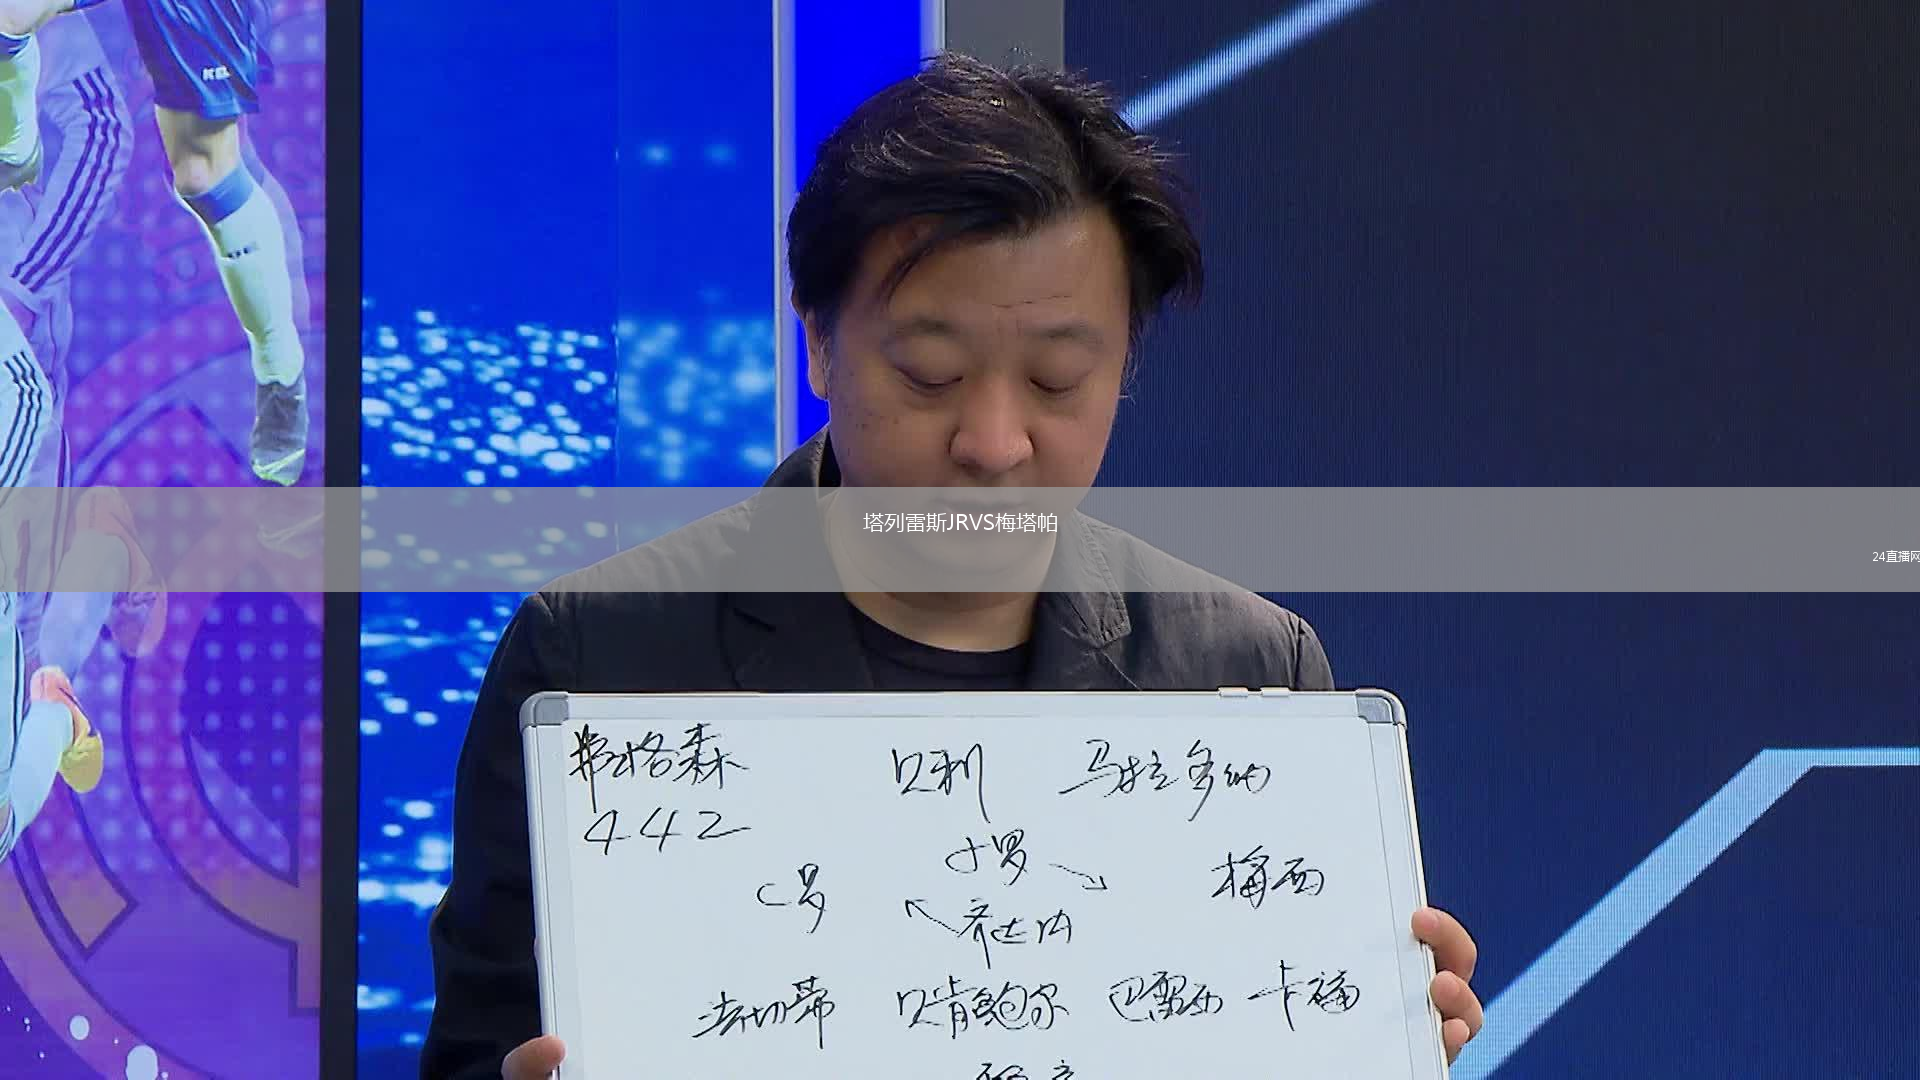 KEL
塔列雷斯JRVS梅塔帕
24直播网
弗格森 贝利 马拉多纳
442
小罗
C罗 梅西
齐达内
法切蒂 贝肯鲍尔 巴雷西 卡福